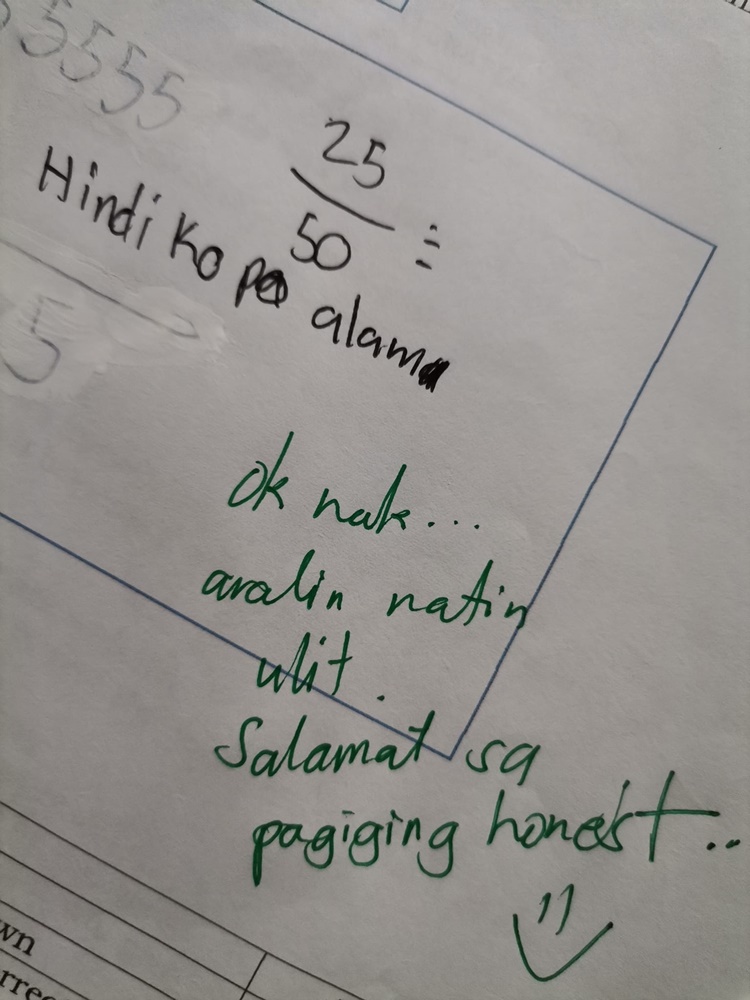 5555
25
50 =
Hindi ko po alam
5
ok nak...
aralin natin
ulit.
Salamat sa
pagiging honest..
wn
rrec